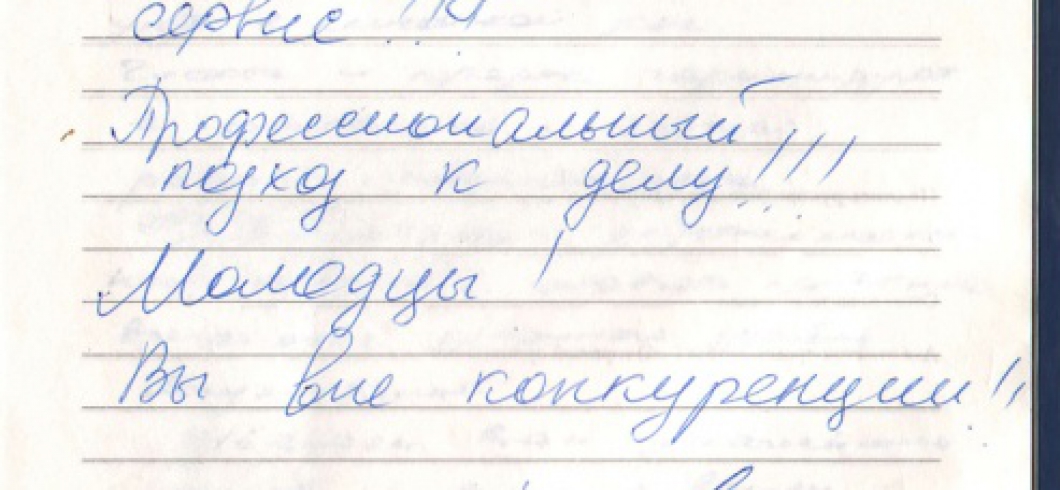 сервис!!!
Профессиональный
подход к делу!!!
Молодцы!
Вы вне конкуренции!!